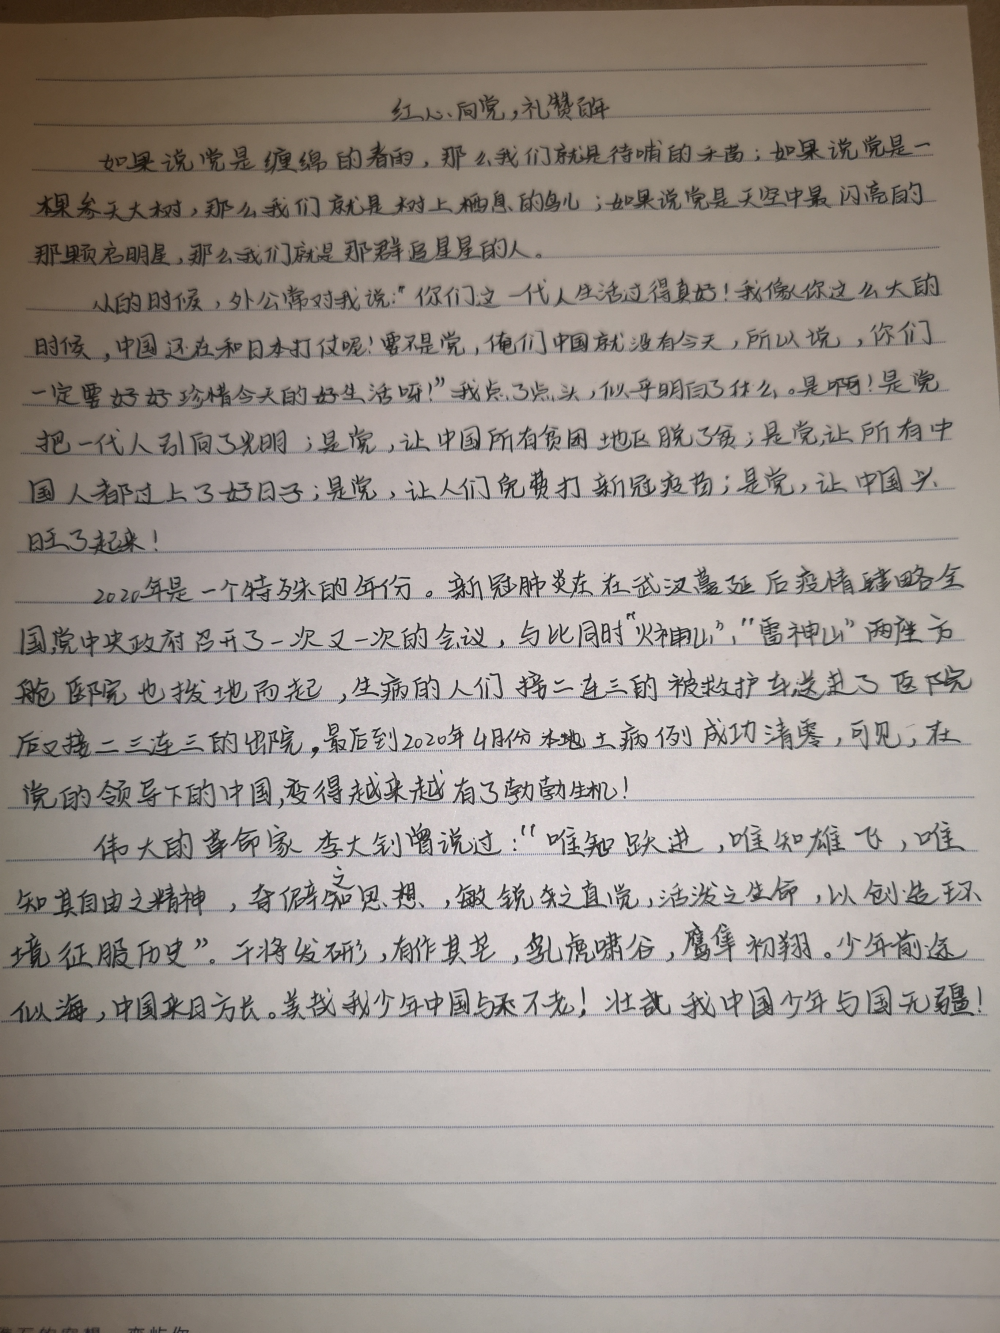 红心向党,礼赞百年
如果说党是缠绵的春雨,那么我们就是待哺的禾苗;如果说党是一
棵参天大树,那么我们就是树上栖息的鸟儿;如果说党是天空中最闪亮的
那颗启明星,那么我们就是那群追星星的人。
小的时候,外公常对我说:“你们这一代人生活过得真好!我像你这么大的
时候,中国还在和日本打仗呢!要不是党,俺们中国就没有今天,所以说,你们
一定要好好珍惜今天的好生活呀!”我点了点头,似乎明白了什么。是啊!是党
把一代人引向了光明;是党,让中国所有贫困地区脱了贫;是党让所有中
国人都过上了好日子;是党,让人们免费打新冠疫苗;是党,让中国兴
旺了起来!
2020年是一个特殊的年份。新冠肺炎在在武汉蔓延后疫情肆略全
国党中央政府召开了一次又一次的会议,与比同时“火神山”、“雷神山”两座方
舱医院也拨地而起,生病的人们接二连三的被救护车送进了医院
后又接二三连三的出院,最后到2020年4月份本地土病例成功清零,可见,在
党的领导下的中国,变得越来越有了勃勃生机!
伟大的革命家李大钊曾说过:“唯知跃进,唯知雄飞,唯
知其自由之精神,奇僻之思想,敏锐之直觉,活泼之生命,以创造环
境征服历史”。干将发硎,有作其芒,乳虎啸谷,鹰隼初翔。少年前途
似海,中国来日方长。美哉我少年中国与天不老!壮哉我中国少年与国无疆!